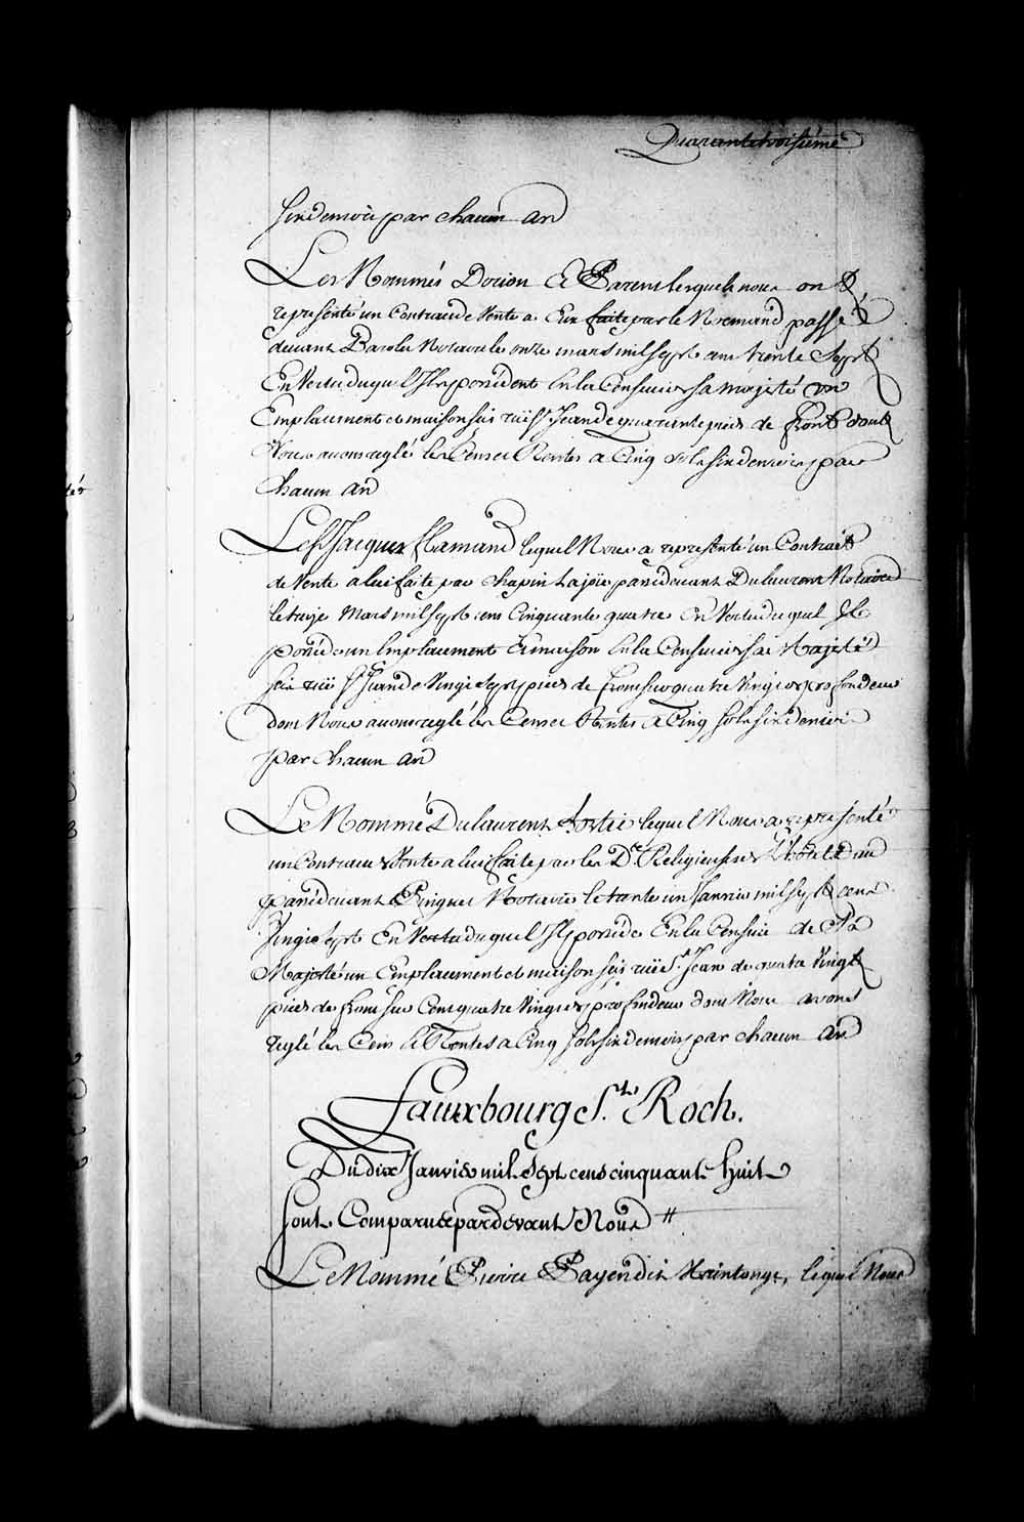 Quarante troisieme
Six deniers par chacun an
Les Nommés Dorion & Parent lesquels nous ont
representé un Contract de Vente a Eux faite par le Normand passé
devant Barolet Notaire le onze mars mil sept cent trente sept
En Vertu duquel Ils possedent En la Censive de sa majesté un
Emplacement et maison sis rüe St Jean de quarante pieds de front dont
Nous avons reglé les Cens et Rentes a Cinq sols six deniers par
chacun an
Le Sr Jacques flamand lequel Nous a representé un Contract
de Vente a lui faite par chapin Lajoie passé devant Dulaurent Notaire
le treize Mars mil sept cens Cinquante quatre En Vertu duquel Il
possede un Emplacement & maison En la Censive de sa Majesté
sis rüe St Jean de Vingt sept pieds de front sur quatre Vingt de profondeur
dont Nous avons reglé les Cens et Rentes a Cinq sols six deniers
par chacun an
Le Nommé Dulaurent lequel Nous a representé
un Contract de Vente a lui faite par les D.es Religieuses
passé devant Pinguet Notaire le trente un Janvier mil sept cens
Vingt sept En Vertu duquel Il possede En la Censive de Sa
Majesté un Emplacement et maison sis rüe St Jean de quatre Vingt
pieds de front sur Cent quatre Vingt de profondeur dont Nous avons
reglé les Cens & Rentes a Cinq sols six deniers par chacun an
Fauxbourg St. Roch.
Du dix Janvier mil Sept cens cinquant huit
Sont Comparus pardevant Nous
Le Nommé Pierre Payen dit Xaintonge, lequel Nous